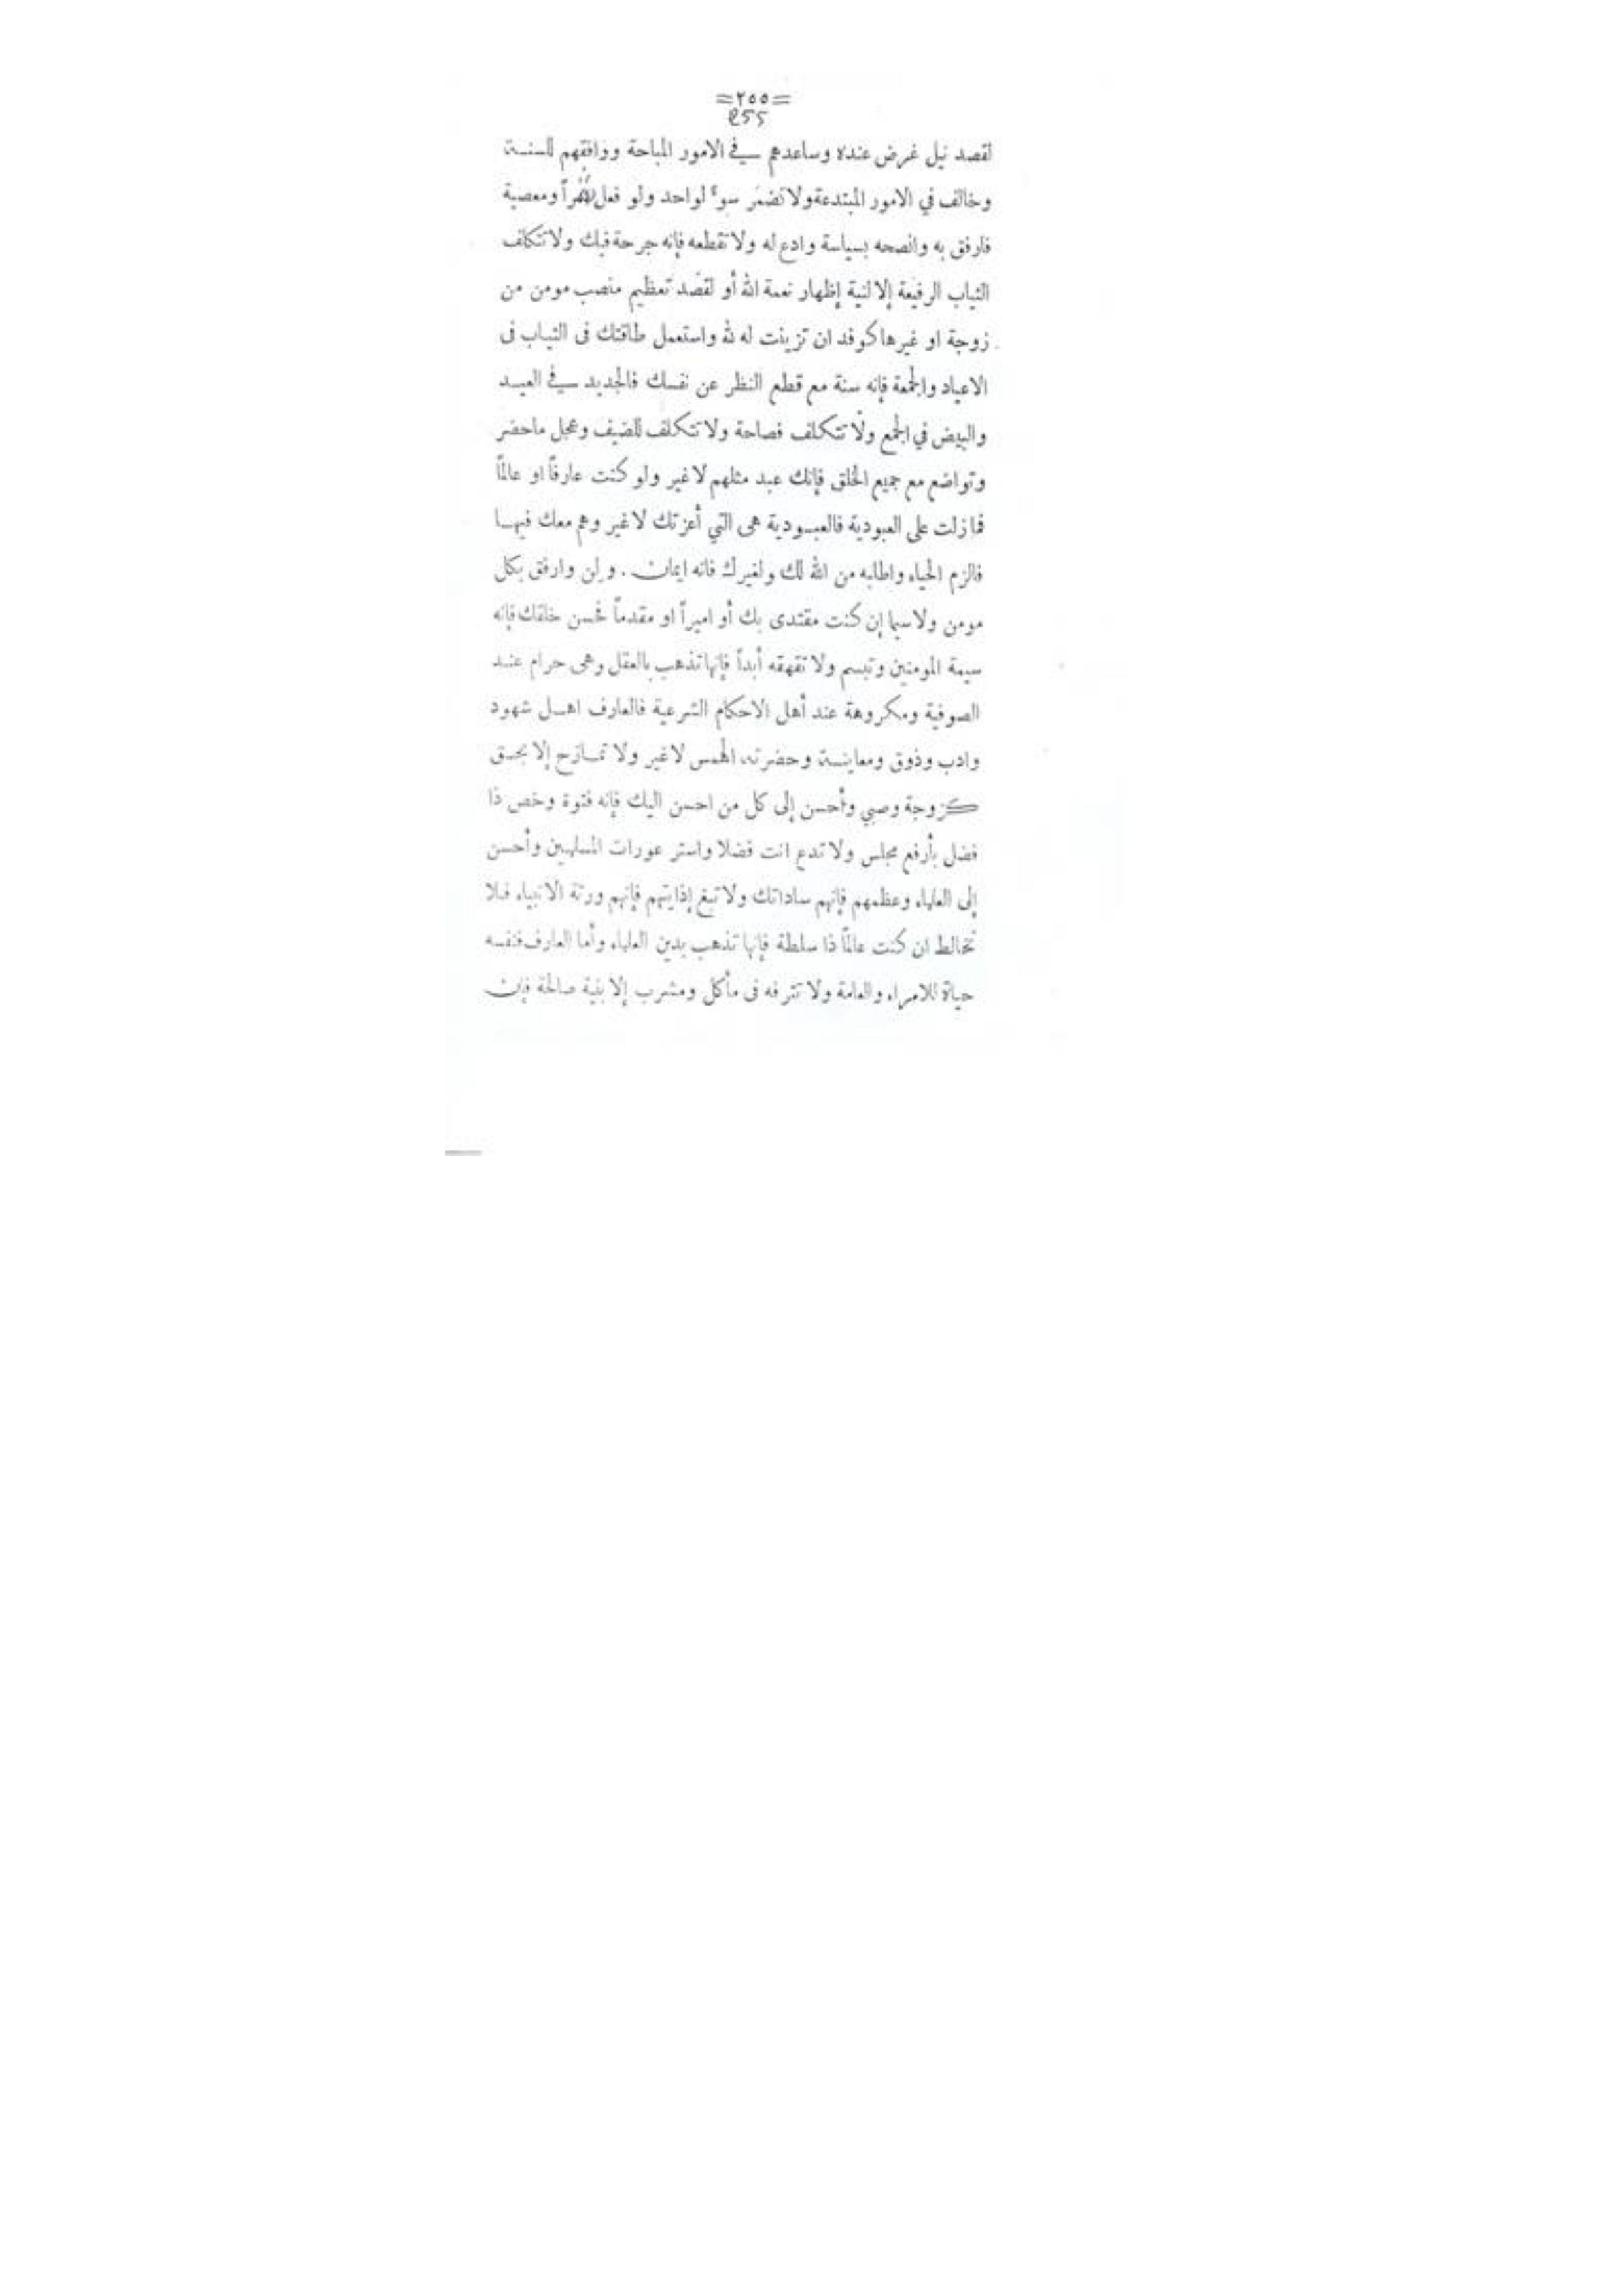 =٢٥٥=
255
لقصد نيل غرض عنده وساعدهم في الامور المباحة ووافقهم للسنة
وخالف في الامور المبتدعة ولا تضمر سوءً لواحد ولو فعل كفراً ومعصية
فارفق به وانصحه بسياسة وادع له ولا تقطعه فإنه جرحة فيك ولا تتكلف
الثياب الرفيعة إلا لنية إظهار نعمة الله أو لقصد تعظيم منصب مومن من
زوجة او غيرها كوفد ان تزينت له لله واستعمل طاقتك فى الثياب فى
الاعياد والجمعة فإنه سنة مع قطع النظر عن نفسك فالجديد في العيد
والبيض في الجمع ولا تتكلف فصاحة ولا تتكلف للضيف وعجل ماحضر
وتواضع مع جميع الخلق فإنك عبد مثلهم لا غير ولو كنت عارفاً او عالماً
فما زلت على العبودية فالعبودية هى التي أعزتك لا غير وهم معك فيها
فالزم الحياء واطلبه من الله لك ولغيرك فانه ايمان . ولن وارفق بكل
مومن ولا سيما إن كنت مقتدى بك أو اميراً او مقدماً فحسن خلقك فإنه
سيمة المومنين وتبسم ولا تقهقه أبداً فإنها تذهب بالعقل وهى حرام عند
الصوفية ومكروهة عند أهل الاحكام الشرعية فالعارف اهل شهود
وادب وذوق ومعاينة وحضرته الهمس لا غير ولا تمازح إلا بحق
كزوجة وصبي وأحسن إلى كل من احسن اليك فإنه فتوة وخص ذا
فضل بأرفع مجلس ولا تدع انت فضلا واستر عورات المسلمين وأحسن
إلى العلماء وعظمهم فإنهم ساداتك ولا تبغ إذايتهم فإنهم ورثة الانبياء فلا
تخالط ان كنت عالماً ذا سلطة فإنها تذهب بدين العلماء وأما العارف فنفسه
حياة للامراء والعامة ولا تترفه فى مأكل ومشرب إلا بنية صالحة فإن